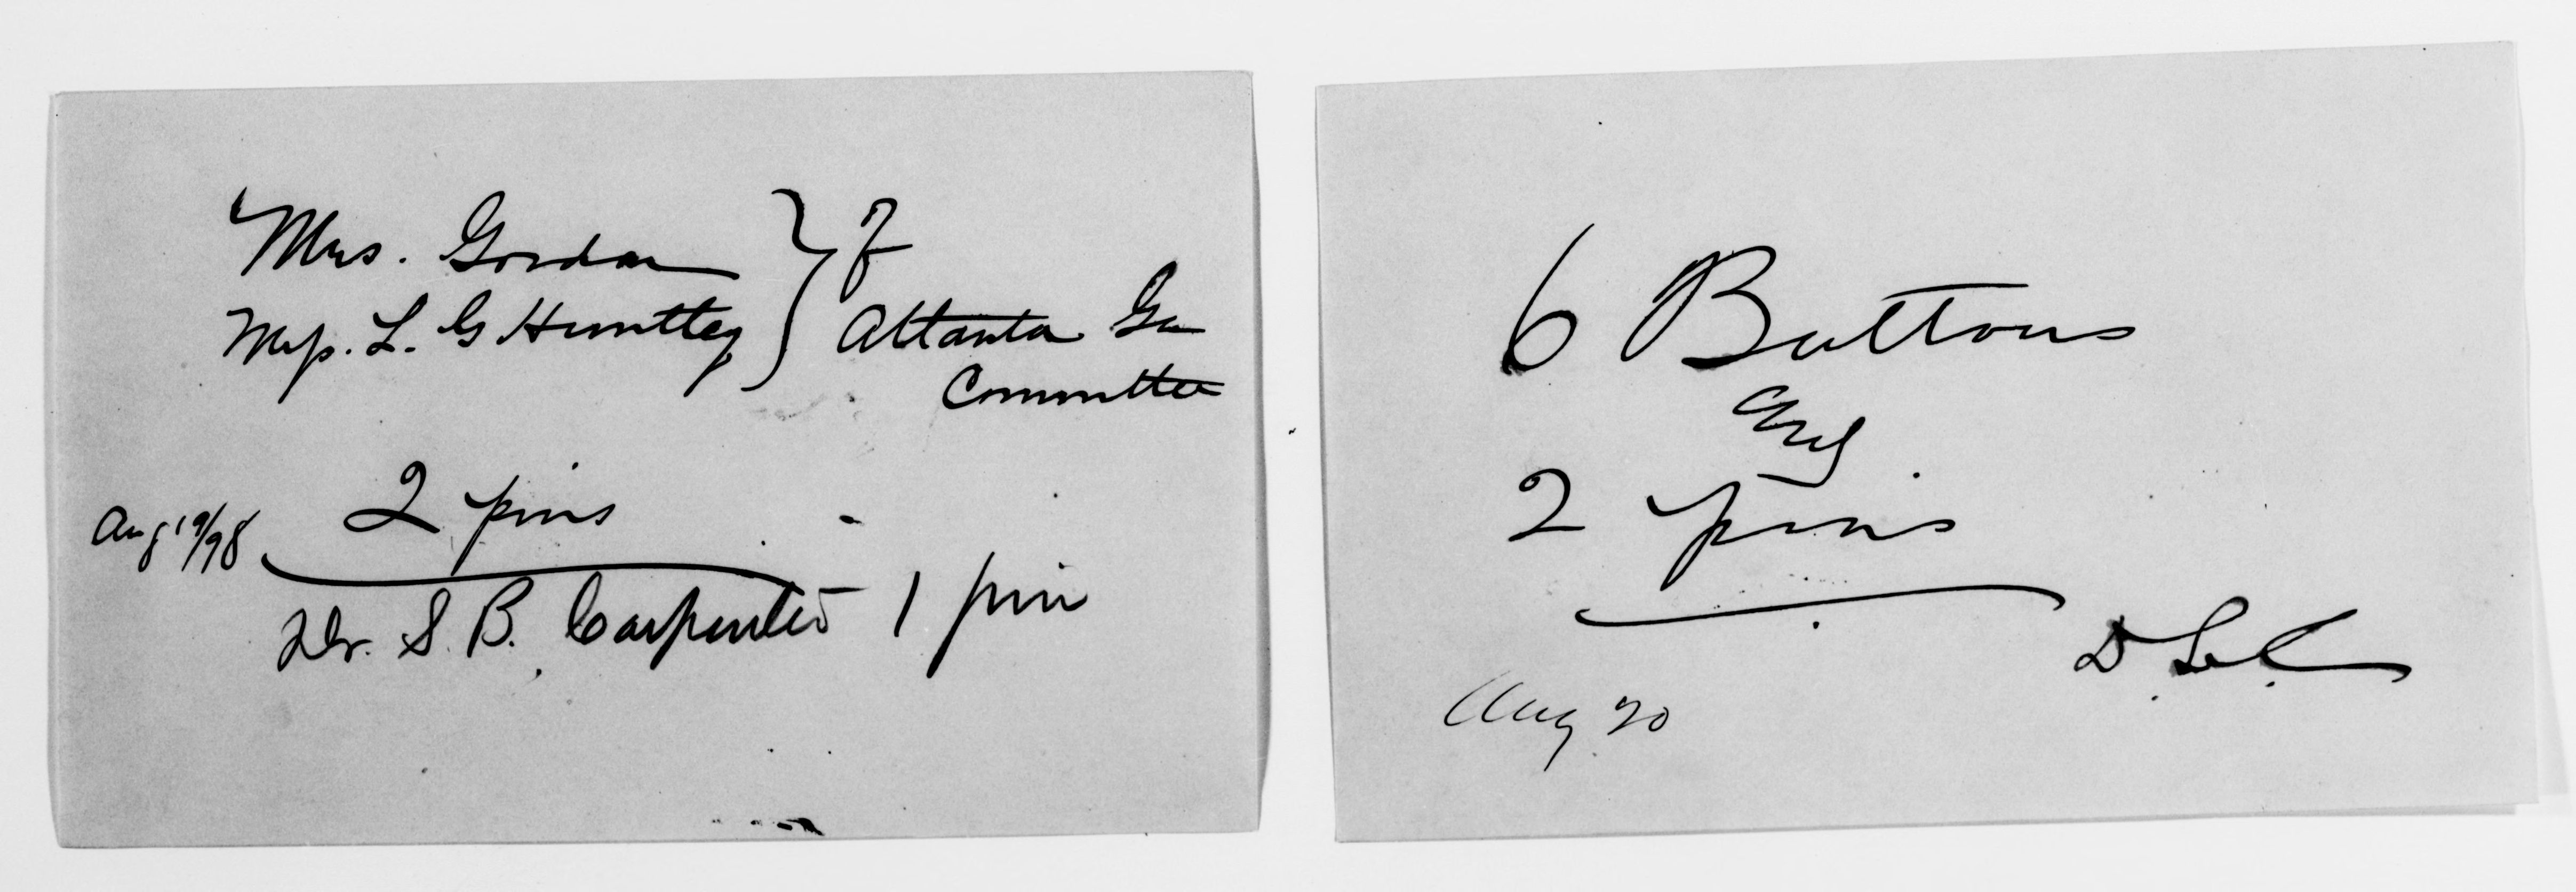 Mrs. Gordon } of
Mrs. L. G Huntley } Atlanta Ga
Committee
2 pins
Aug 19/98
Dr. S. B. Carpenter - 1 pin
6 Buttons
and
2 pins
D. L. C.
Aug 20